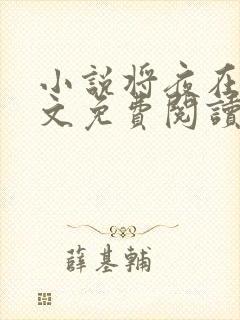 小說将夜在
文免費閱讀
薛基輔